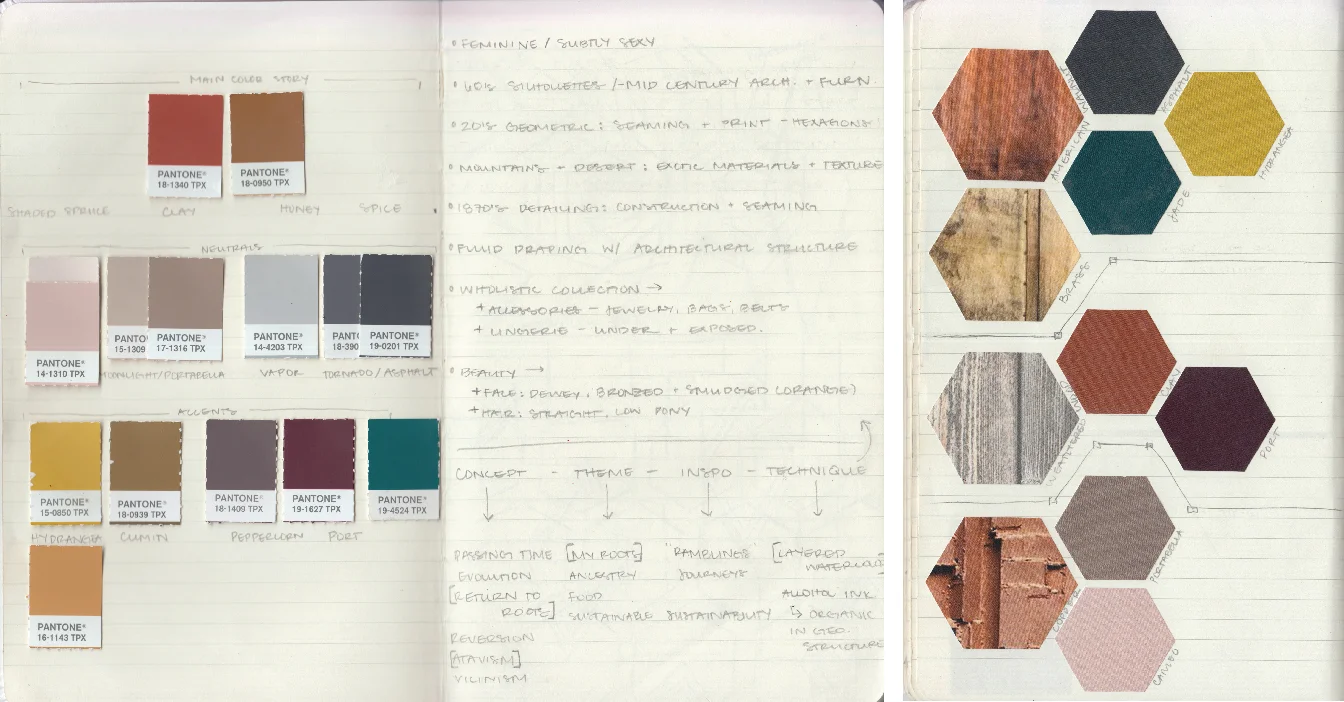 MAIN COLOR STORY
PANTONE®
18-1340 TPX
PANTONE®
18-0950 TPX
SHADED SPRUCE CLAY HONEY SPICE
NEUTRALS
PANTONE®
14-1310 TPX
PANTO
15-1309
PANTONE®
17-1316 TPX
PANTONE®
14-4203 TPX
PANTO
18-390
PANTONE®
19-0201 TPX
MOONLIGHT/PORTABELLA VAPOR TORNADO/ASPHALT
ACCENTS
PANTONE®
15-0850 TPX
PANTONE®
18-0939 TPX
PANTONE®
18-1409 TPX
PANTONE®
19-1627 TPX
PANTONE®
19-4524 TPX
HYDRANGEA CUMIN PEPPERCORN PORT
PANTONE®
16-1143 TPX
• FEMININE / SUBTLY SEXY
• 40'S SILHOUETTES /-MID CENTURY ARCH. + FURN.
• 20'S GEOMETRIC: SEAMING + PRINT - HEXAGONS
• MOUNTAINS - DESERT: EXOTIC MATERIALS + TEXTURE
• 1870'S DETAILING: CONSTRUCTION + SEAMING
• FLUID DRAPING W/ ARCHITECTURAL STRUCTURE
• WHOLISTIC COLLECTION →
+ ACCESSORIES - JEWELRY, BAGS, BELTS
+ LINGERIE - UNDER + EXPOSED.
• BEAUTY →
+ FACE: DEWEY, BRONZED + SMUDGED (ORANGE)
+ HAIR: STRAIGHT, LOW PONY
CONCEPT - THEME - INSPO - TECHNIQUE
PASSING TIME [MY ROOTS] "RAMBLINGS" [LAYERED
WATERCOLOR]
EVOLUTION ANCESTRY JOURNEYS
[RETURN TO FOOD ALCOHOL INK
ROOTS] SUSTAINABLE SUSTAINABILITY ↳ ORGANIC
REVERSION IN GEO.
STRUCTURE
[ATAVISM]
AMERICAN WALNUT
ASPHALT
HYDRANGEA
JADE
BRASS
CLAY
WEATHERED WOOD
PORT
PORTABELLA
COPPER
CAMEO